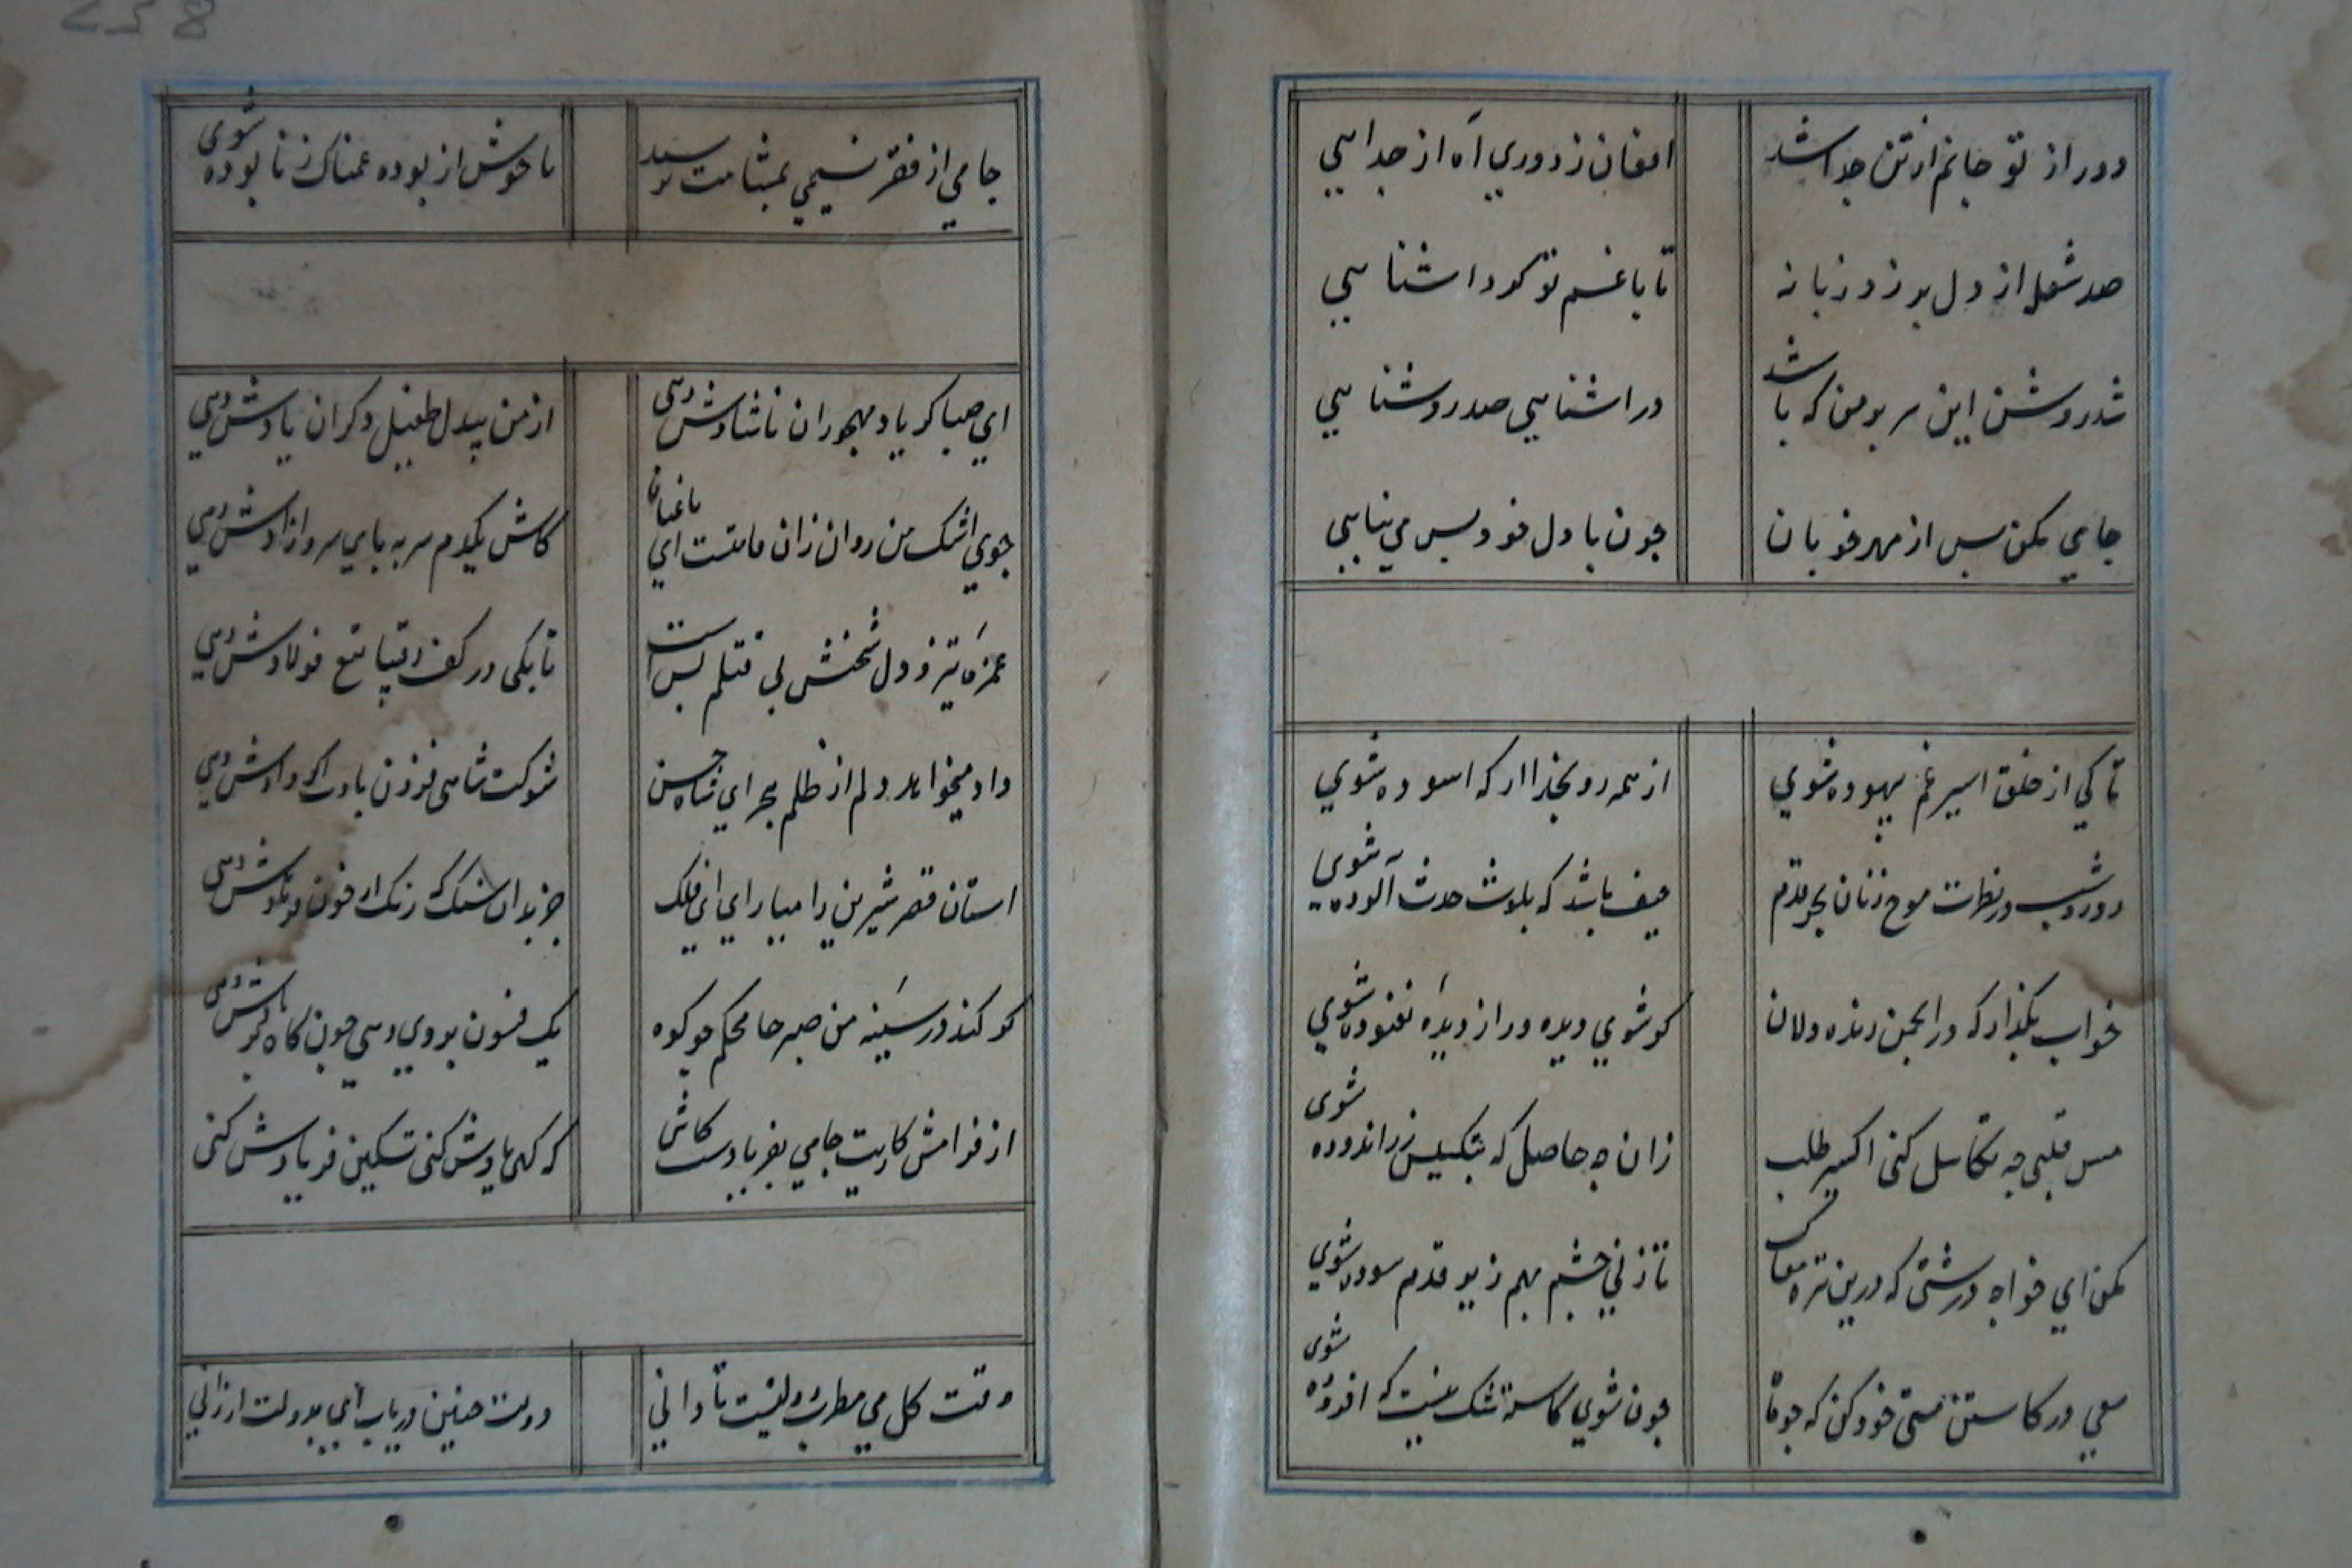 دور از تو جانم از تن جدا شد افغان ز دوري آه از جدايي
صد شعله از دل بر زد زبانه تا با غم تو کرد اشنايي
شد روشن اين سر بر من که باشد در اشنايي صد روشنايي
جامي مکن بس از مهر خوبان چون با دل خود بس مي نيايي
تا کي از خلق اسير غم بيهوده شوي از همه رو بخدا ار که اسوده شوي
روز و شب در نظرت موج زنان بحر قدم حيف باشد که بلوث حدث آلوده شوي
خواب بگذار که در انجمن زنده دلان کو شوي ديده ور از ديدهٔ نغنوده شوي
مس قلبي چه تکاسل کني اکسير طلب زان چه حاصل که بتلبيس زر اندوده شوي
مکن اي خواجه درشتي که درين تيره مغاک تا زني چشم بهم زير قدم سوده شوي
سعي در کاستن هستي خود کن که چو ما چون شوي کاسته شک نيست که افزوده شوي
جامي از فقر نسيمي بمشامت نرسيد تا خوش از بوده غمناک ز نابوده شوي
اي صبا کر ياد مهجوران ناشادش دهي از من بيدل طفيل ديکران يادش دهي
جوي اشک من روان زان قامتست اي باغبان کاش يکدم سر به پاي سرو ازادش دهي
غمزهٔ تيز و دل سختش پي قتلم بس است تا بکي در کف رقيبا تيغ فولادش دهي
داد ميخواهد دلم از ظلم هجر اي شاه حسن شوکت شاهي فزون بادت اکر دادش دهي
استان قصر شيرين را ميياراي اي فلک جز بدان سنک که رنک از خون فرهادش دهي
کو کند در سينهٔ من صبر جا محکم چو کوه يک فسون بر وي دمي چون کاه بر بادش دهي
از فرامش کاريت جامي بفريادست کاش که کهي يادش کني تسکين فريادش کني
وقت کل مي و مطرب دولتيست تا داني دولت چنين درياب اي بدولت ارزاني